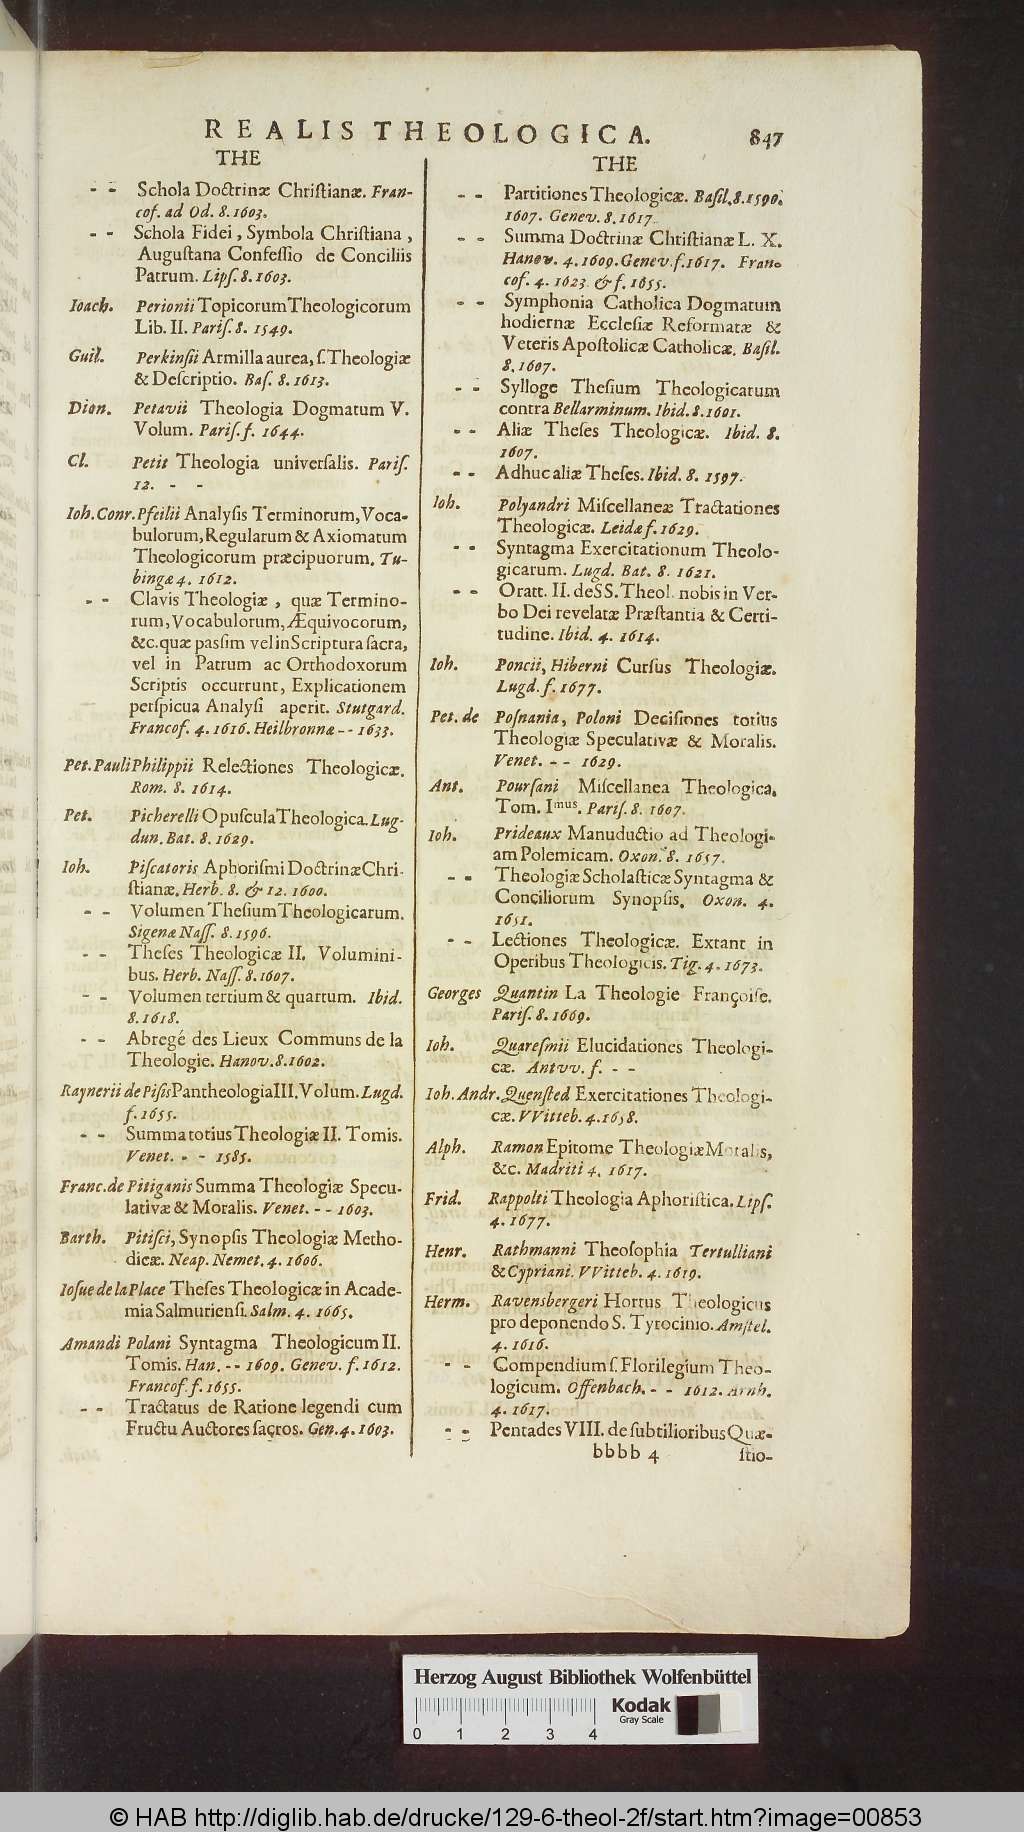 REALIS THEOLOGICA. 847
THE
- - Schola Doctrinæ Chriſtianæ. Fran-
cof. ad Od. 8. 1603.
- - Schola Fidei, Symbola Chriſtiana,
Auguſtana Confeſſio de Conciliis
Patrum. Lipſ. 8. 1603.
Ioach. Perionii Topicorum Theologicorum
Lib. II. Pariſ. 8. 1549.
Guil. Perkinſii Armilla aurea, ſ. Theologiæ
& Deſcriptio. Baſ. 8. 1613.
Dion. Petavii Theologia Dogmatum V.
Volum. Pariſ. f. 1644.
Cl. Petit Theologia univerſalis. Pariſ.
12. - -
Ioh. Conr. Pfeilii Analyſis Terminorum, Voca-
bulorum, Regularum & Axiomatum
Theologicorum præcipuorum. Tu-
bingæ 4. 1612.
- - Clavis Theologiæ, quæ Termino-
rum, Vocabulorum, Æquivocorum,
&c. quæ paſſim vel in Scriptura ſacra,
vel in Patrum ac Orthodoxorum
Scriptis occurrunt, Explicationem
perſpicua Analyſi aperit. Stutgard.
Francof. 4. 1616. Heilbronnæ - - 1633.
Pet. Pauli Philippii Relectiones Theologicæ.
Rom. 8. 1614.
Pet. Picherelli Opuſcula Theologica. Lug-
dun. Bat. 8. 1629.
Ioh. Piſcatoris Aphoriſmi Doctrinæ Chri-
ſtianæ. Herb. 8. & 12. 1600.
- - Volumen Theſium Theologicarum.
Sigenæ Naſſ. 8. 1596.
- - Theſes Theologicæ II. Volumini-
bus. Herb. Naſſ. 8. 1607.
- - Volumen tertium & quartum. Ibid.
8. 1618.
- - Abregé des Lieux Communs de la
Theologie. Hanov. 8. 1602.
Raynerii de Piſis Pantheologia III. Volum. Lugd.
f. 1655.
- - Summa totius Theologiæ II. Tomis.
Venet. - - 1585.
Franc. de Pitiganis Summa Theologiæ Specu-
lativæ & Moralis. Venet. - - 1603.
Barth. Pitiſci, Synopſis Theologiæ Metho-
dicæ. Neap. Nemet. 4. 1606.
Ioſue de la Place Theſes Theologicæ in Acade-
mia Salmurienſi. Salm. 4. 1665.
Amandi Polani Syntagma Theologicum II.
Tomis. Han. - - 1609. Genev. f. 1612.
Francof. f. 1655.
- - Tractatus de Ratione legendi cum
Fructu Auctores ſacros. Gen. 4. 1603.
THE
- - Partitiones Theologicæ. Baſil. 8. 1590.
1607. Genev. 8. 1617.
- - Summa Doctrinæ Chriſtianæ L. X.
Hanov. 4. 1609. Genev. f. 1617. Fran-
cof. 4. 1623 & f. 1655.
- - Symphonia Catholica Dogmatum
hodiernæ Eccleſiæ Reformatæ &
Veteris Apoſtolicæ Catholicæ. Baſil.
8. 1607.
- - Sylloge Theſium Theologicarum
contra Bellarminum. Ibid. 8. 1601.
- - Aliæ Theſes Theologicæ. Ibid. 8.
1607.
- - Adhuc aliæ Theſes. Ibid. 8. 1597.
Ioh. Polyandri Miſcellaneæ Tractationes
Theologicæ. Leidæ f. 1629.
- - Syntagma Exercitationum Theolo-
gicarum. Lugd. Bat. 8. 1621.
- - Oratt. II. de SS. Theol. nobis in Ver-
bo Dei revelatæ Præſtantia & Certi-
tudine. Ibid. 4. 1614.
Ioh. Poncii, Hiberni Curſus Theologiæ.
Lugd. f. 1677.
Pet. de Poſnania, Poloni Deciſiones totius
Theologiæ Speculativæ & Moralis.
Venet. - - 1629.
Ant. Pourſani Miſcellanea Theologica.
Tom. Imus. Pariſ. 8. 1607.
Ioh. Prideaux Manuductio ad Theologi-
am Polemicam. Oxon. 8. 1657.
- - Theologiæ Scholaſticæ Syntagma &
Conciliorum Synopſis. Oxon. 4.
1651.
- - Lectiones Theologicæ. Extant in
Operibus Theologicis. Tig. 4. 1673.
Georges Quantin La Theologie Françoiſe.
Pariſ. 8. 1669.
Ioh. Quareſmii Elucidationes Theologi-
cæ. Antvv. f. - -
Ioh. Andr. Quenſted Exercitationes Theologi-
cæ. VVitteb. 4. 1658.
Alph. Ramon Epitome Theologiæ Moralis,
&c. Madriti 4. 1617.
Frid. Rappolti Theologia Aphoriſtica. Lipſ.
4. 1677.
Henr. Rathmanni Theoſophia Tertulliani
& Cypriani. VVitteb. 4. 1619.
Herm. Ravensbergeri Hortus Theologicus
pro deponendo S. Tyrocinio. Amſtel.
4. 1616.
- - Compendium ſ. Florilegium Theo-
logicum. Offenbach. - - 1612. Arnh.
4. 1617.
- - Pentades VIII. de ſubtilioribus Quæ-
bbbb 4 ſtio-
Herzog August Bibliothek Wolfenbüttel
0 1 2 3 4
Kodak
Gray Scale
© HAB http://diglib.hab.de/drucke/129-6-theol-2f/start.htm?image=00853